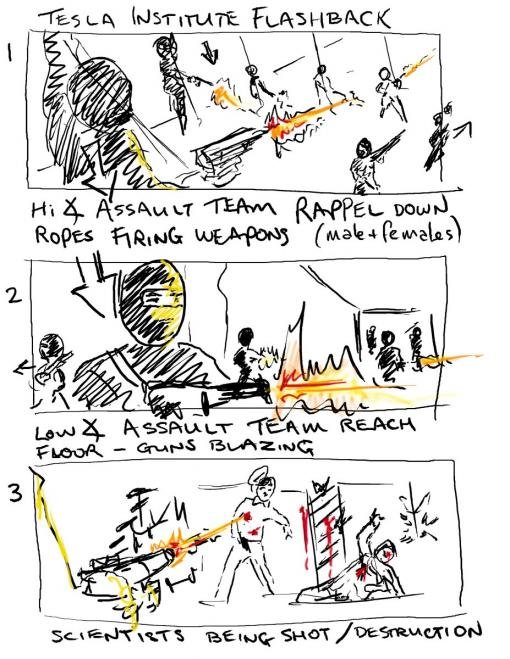 TESLA INSTITUTE FLASHBACK
1
Hi ∡ ASSAULT TEAM RAPPEL DOWN
ROPES FIRING WEAPONS (male + females)
2
LOW ∡ ASSAULT TEAM REACH
FLOOR - GUNS BLAZING
3
SCIENTISTS BEING SHOT / DESTRUCTION